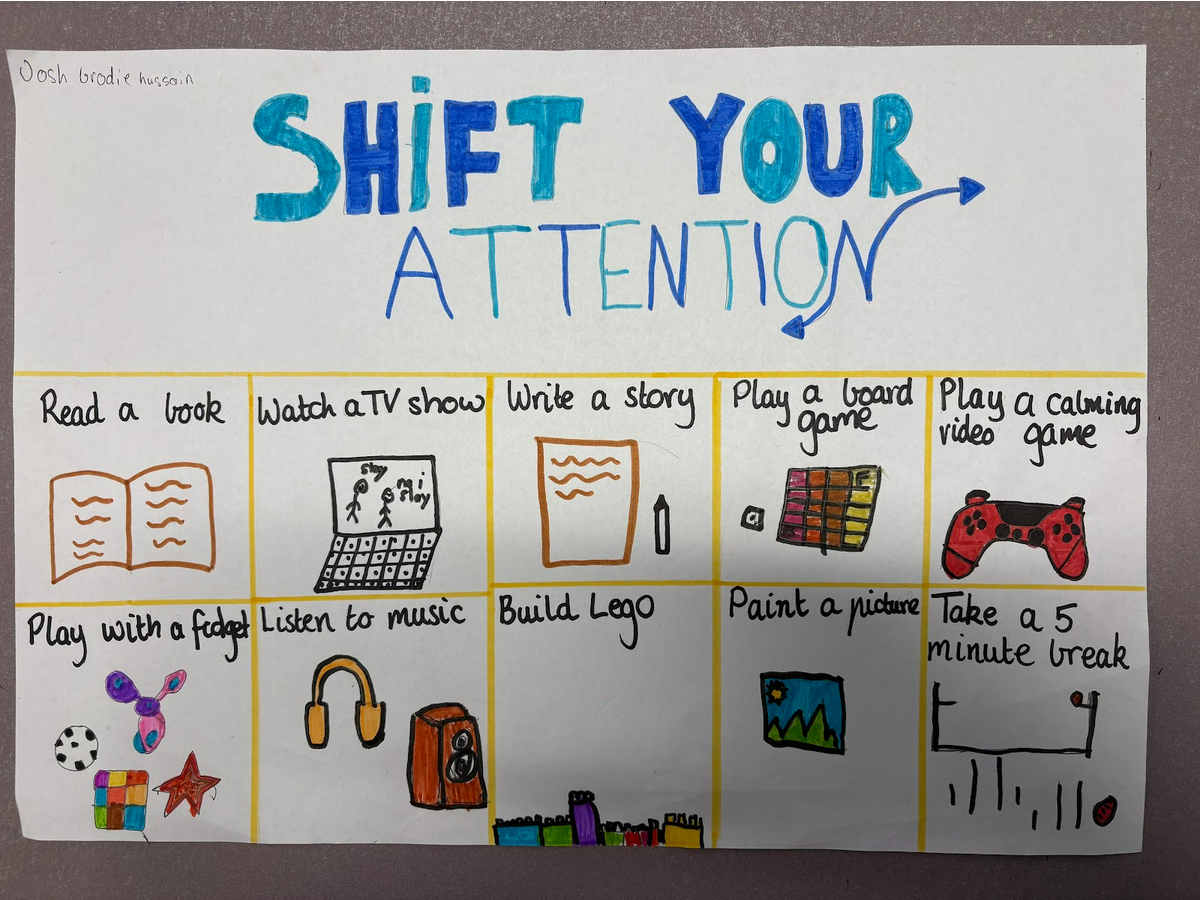 Josh Brodie hussain
SHiFT YOUR
ATTENTION
Read a book
Watch a TV show
Write a story
Play a board
game
Play a calming
video game
slay
no i
slay
a
Play with a fidget
Listen to music
Build Lego
Paint a picture
Take a 5
minute break